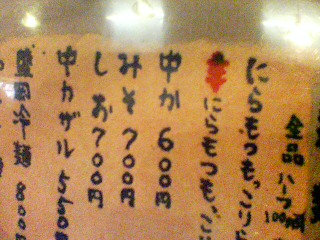 全品ハーフ
100
にらもつもっこり
辛にらもつもっこり
中か600円
みそ700円
しお700円
中カザル550円
盛岡冷麺800